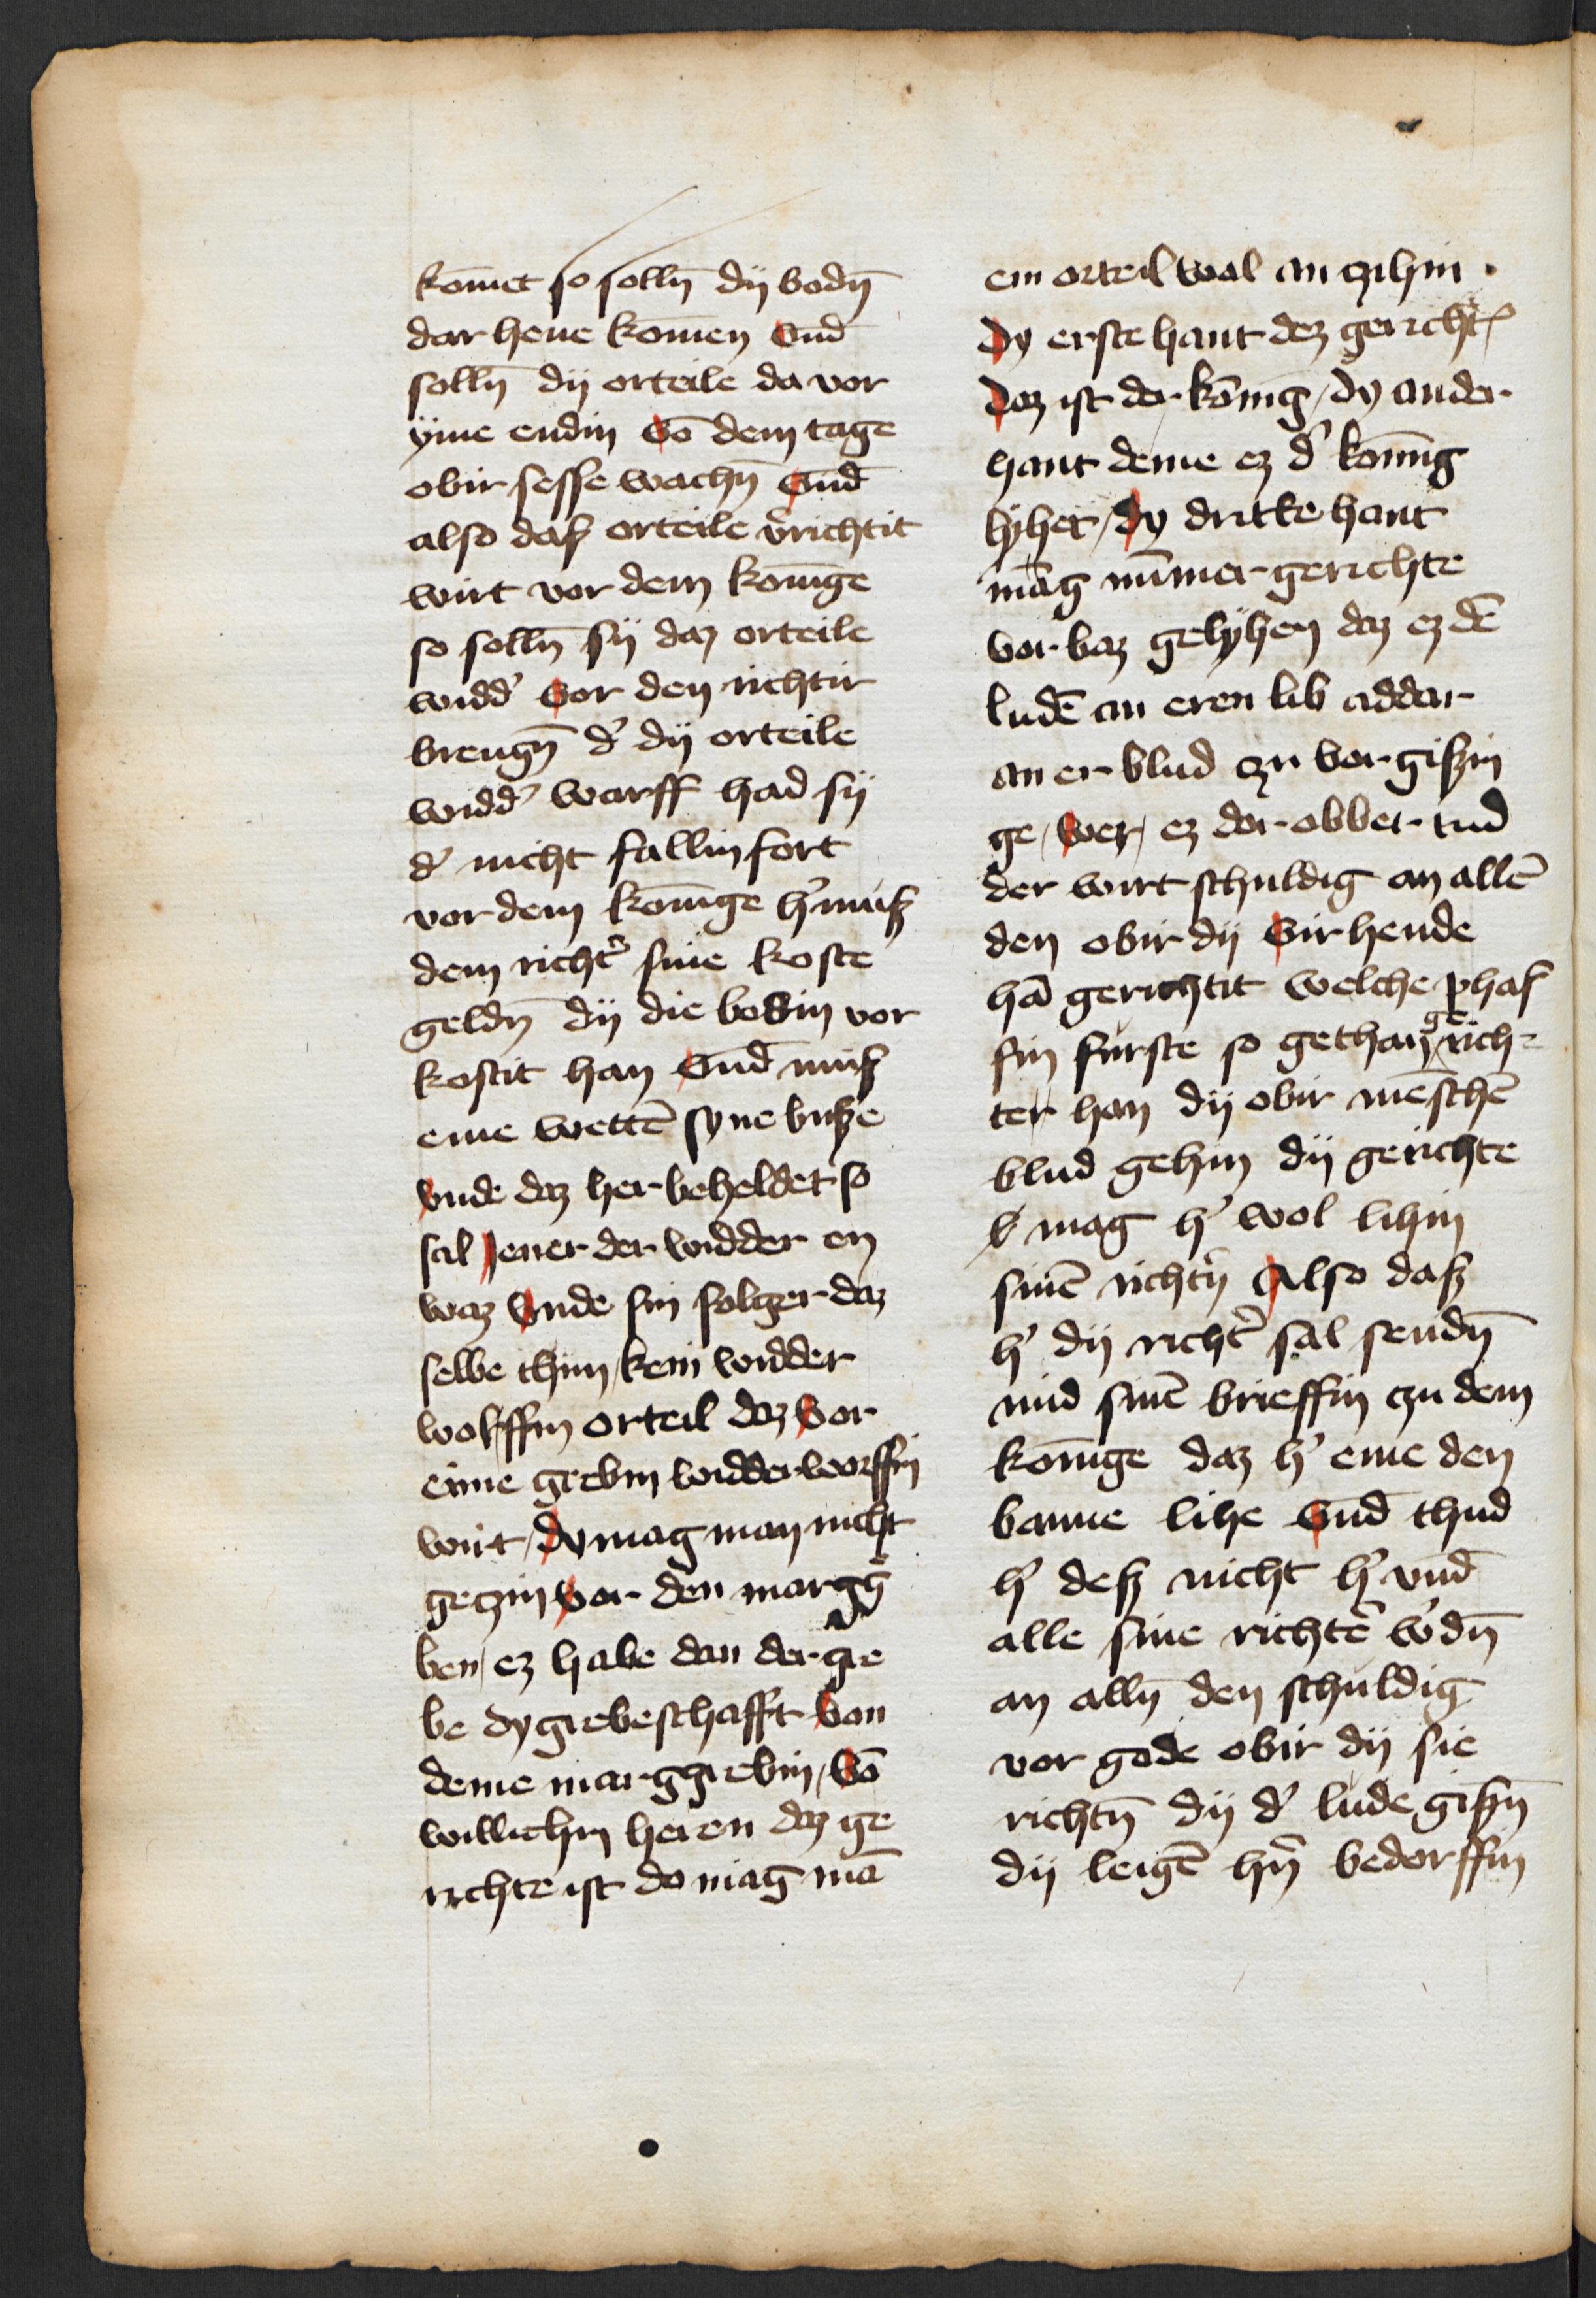 kōmet so solln̄ dij bodn̄
dar hene komen vnd̄
solln̄ dij orteile da vor
yme endin vō dem tage
obir sesse wachn̄ vnd̄
also daß orteile v͛richtit
wirt vor dem konīge
so solln̄ sij daz orteile
widd͛ vor den richtir
brengn̄ d͛ dij orteile
widd͛ warff had sij
d͛ nicht fallin fort
vor dem konīge h͛ muß
dem richt͛ sine koste
geldn̄ dij die bodin vor
kostit han vnd̄ muß
eme wettē syne buße
vnde daz her beheldet so
sal jener der widder en
waz vnde sin folger daz
selbe thun / kein widder
worffin orteil daz vor
eime grebin widderworffin
wirt / dy mag man nicht
geczin vor den margg͛
ben / ez habe dan der gre
be dy grebeschafft von
deme marggrebin / vō
willichin heren daz ge
richte ist do mag mā
ein orteil wal an czihin .
Dy erste hant dez gericht͛
Daz ist der kōnig / dy ander
hant deme ez d͛ konīg
lyhet / dy dritte hant
māg nūmer gerichte
vorbaz gelyhen daz ez dē
ludē an eren lib addar
an er blud czu vorgißin
ge / wer / ez dar obber tud
der wirt schuldig an allē
den obir dij vir hende
hā gerichtit welche phaf
fin furste so gethan ge rich-
ter han dij obir mēschē
blud gehin dij gerichte
mag h͛ wol lihin
sinē richt͛n Also daß
h͛ dij richt͛ sal sendn̄
mid sinē brieffin czu dem
konīge daz h͛ eme den
banne lihe vnd̄ thud
h͛ deß nicht h͛ vnd̄
alle sine richtē w͛dn̄
an alln̄ den schuldig
vor gode obir dij sie
richtn̄ dij d͛ lude gißn̄
dij leigē hn̄ bedorffin